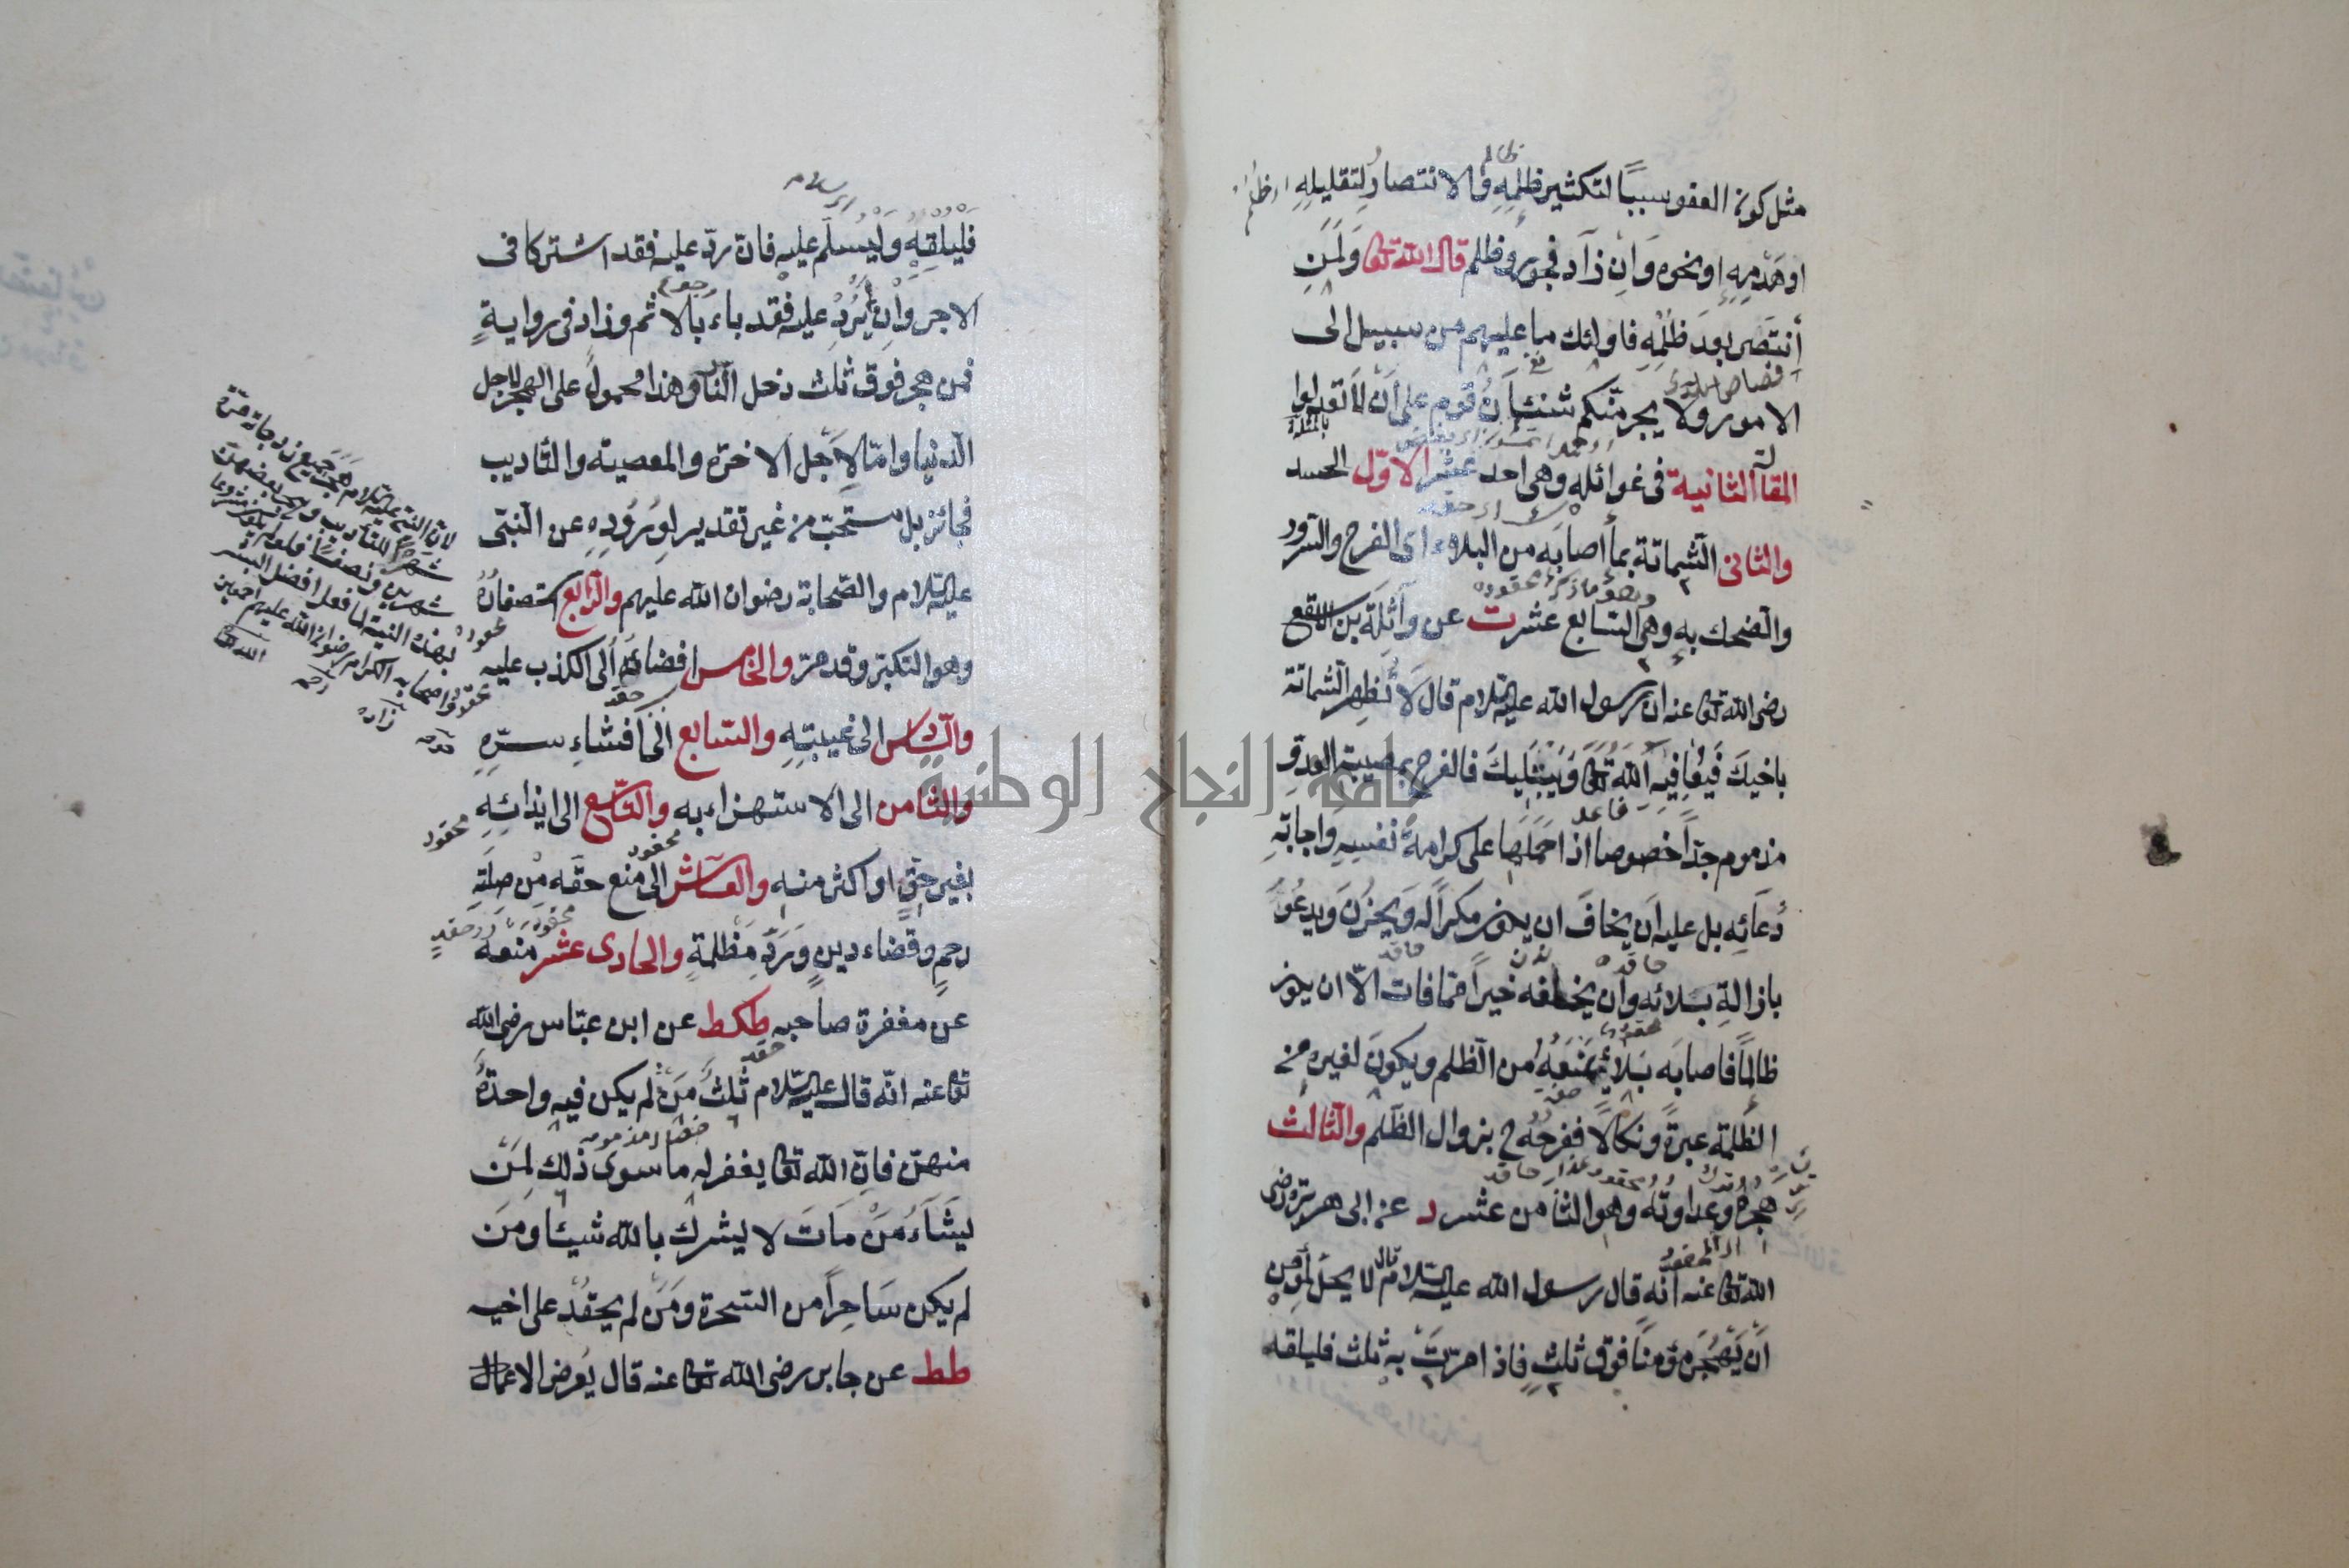 مثل كون العفو سببا لتكثير ظلمه والانتصار لتقليله
او هدمه او نحوه وان زاد فجور وظلم قال الله تعالى ولمن
أنتصر بعد ظلمه فاولئك ما عليهم من سبيل الى
الامور ولا يجرمنكم شنئان قوم على أن لا تعدلوا
المقالة الثانية فى غوائله وهى احد عشر الاول الحسد
والثانى الشماتة بما أصابه من البلاء اى الفرح والسرور
والضحك به وهى السابع عشر ت عن واثلة بن الاسقع
رضى الله تعالى عنه ان رسول الله عليه السلام قال لا تظهر الشماتة
باخيك فيعافيه الله تعالى ويبتليك فالفرح بمصيبة العدو
مذموم جدا خصوصا اذا حملها على كرامة نفسه واجابة
دعائه بل عليه أن يخاف ان يكون مكرا له ويحزن ويدعو
بازالة بلائه وأن يخلفه خيرا مما فات الا ان يكون
ظالما فاصابه بلاء يمنعه من الظلم ويكون لغيره من
الظلمة عبرة ونكالا ففرحه ح بزوال الظلم والثالث
هجره وعداوته وهو الثامن عشر د عن ابى هريرة رضى
الله تعالى عنه أنه قال رسول الله عليه السلام قال لا يحل لمؤمن
أن يهجر مؤمنا فوق ثلث فاذا مرت به ثلث فليلقه
فليلقه وليسلم عليه فان رد عليه فقد اشتركا فى
الاجر وان لم يرد عليه فقد باء بالاثم وزاد فى رواية
فمن هجر فوق ثلث دخل النار وهذا محمول على الهجر لاجل
الدنيا واما لاجل الاخرة والمعصية والتأديب
فجائز بل مستحب من غير تقدير لوروده عن النبى
عليه السلام والصحابة رضوان الله عليهم والرابع استصغاره
وهو التكبر وقد مر والخامس افضائه ألى الكذب عليه
والسادس الى غيبته والسابع الى افشاء سره
والثامن الى الاستهزاء به والتاسع الى ايذائه
بغير حق او اكثر منه والعاشر الى منع حقه من صلة
رحم وقضاء دين ورد مظلمة والحادى عشر منعه
عن مغفرة صاحبه طكط عن ابن عباس رضى الله
تعالى عنه انه قال عليه السلام ثلث من لم يكن فيه واحدة
منهن فان الله تعالى يغفر له ما سوى ذلك لمن
يشاء من مات لا يشرك بالله شيئا ومن
لم يكن ساحرا من السحرة ومن لم يحقد على اخيه
طط عن جابر رضى الله تعالى عنه قال يعرض الاعمال
لان النبى عليه السلام هجر جميع زوجاته مرة
شهرا للتأديب وهجر بعضهن
شهرين ونصفا فلو لم يكن مشروعا
بهذه النية لما فعل افضل البشر
واصحابه الكرام رضوان الله عليهم اجمعين
جامعة النجاح الوطنية